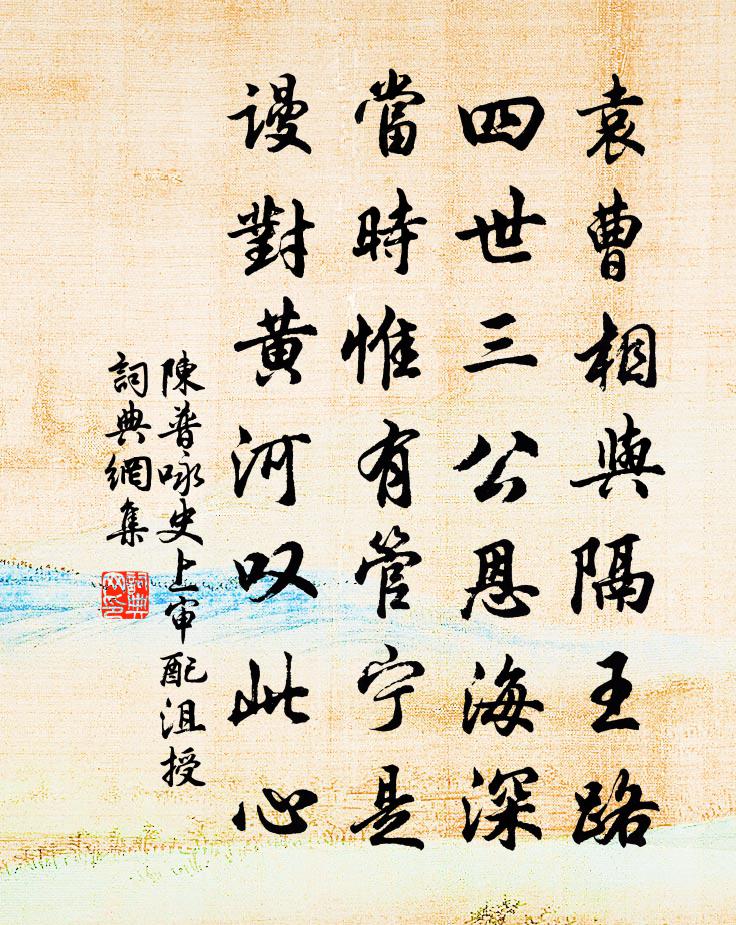 袁曹相與隔王路
四世三公恩海深
當時惟有管宁是
謾對黄河叹此心
陳普咏史上审配沮授
詞典網集
詞典網印